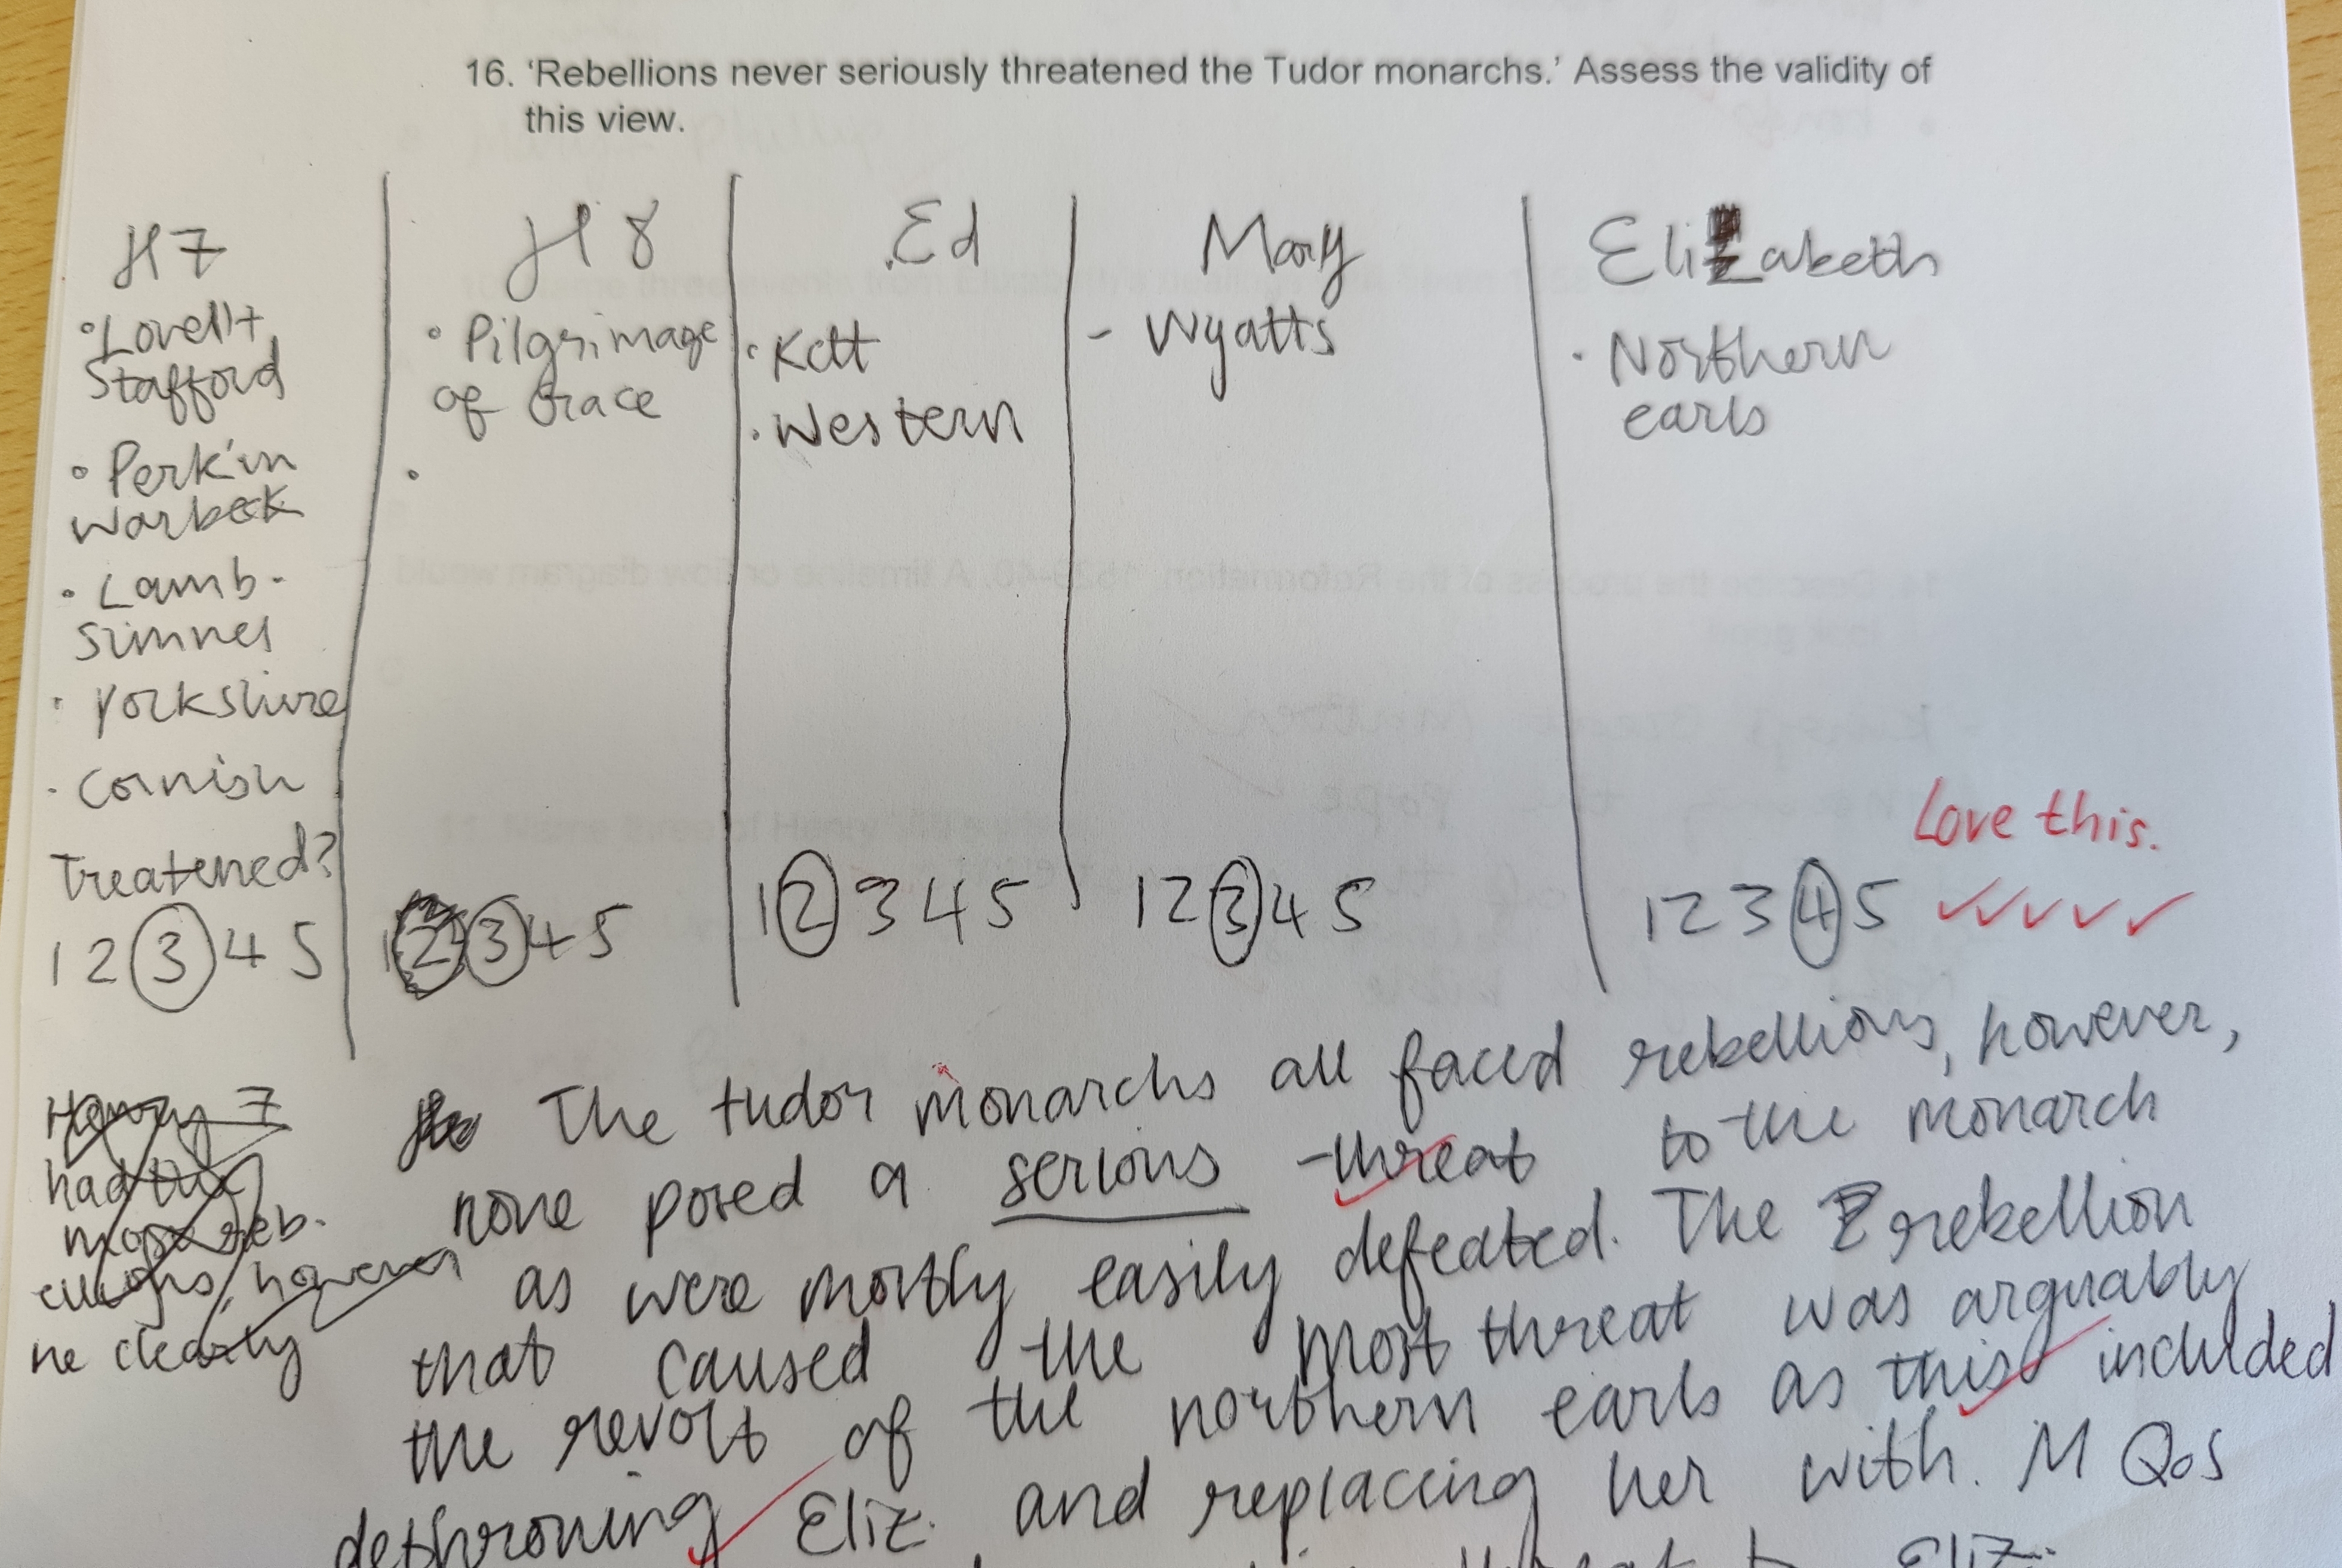 16. ‘Rebellions never seriously threatened the Tudor monarchs.’ Assess the validity of
this view.
H7
• Lovell +
Stafford
• Perkin
Warbeck
• Lamb.
Simnel
• Yorkshire
• Cornish
Treatened?
1 2 3 4 5
H8
• Pilgrimage
of Grace
•
1 2 3 4 5
Ed
• Kett
• Western
1 2 3 4 5
Mary
- Wyatts
1 2 3 4 5
Elizabeth
• Northern
earls
1 2 3 4 5
Love this.
Henry 7
had the
most reb-
ellions, however
he clearly
The tudor monarchs all faced rebellions, however,
none posed a serious threat to the monarch
as were mostly easily defeated. The rebellion
that caused the most threat was arguably
the revolt of the northern earls as this included
dethroning Eliz. and replacing her with M QoS
threat to Eliz.